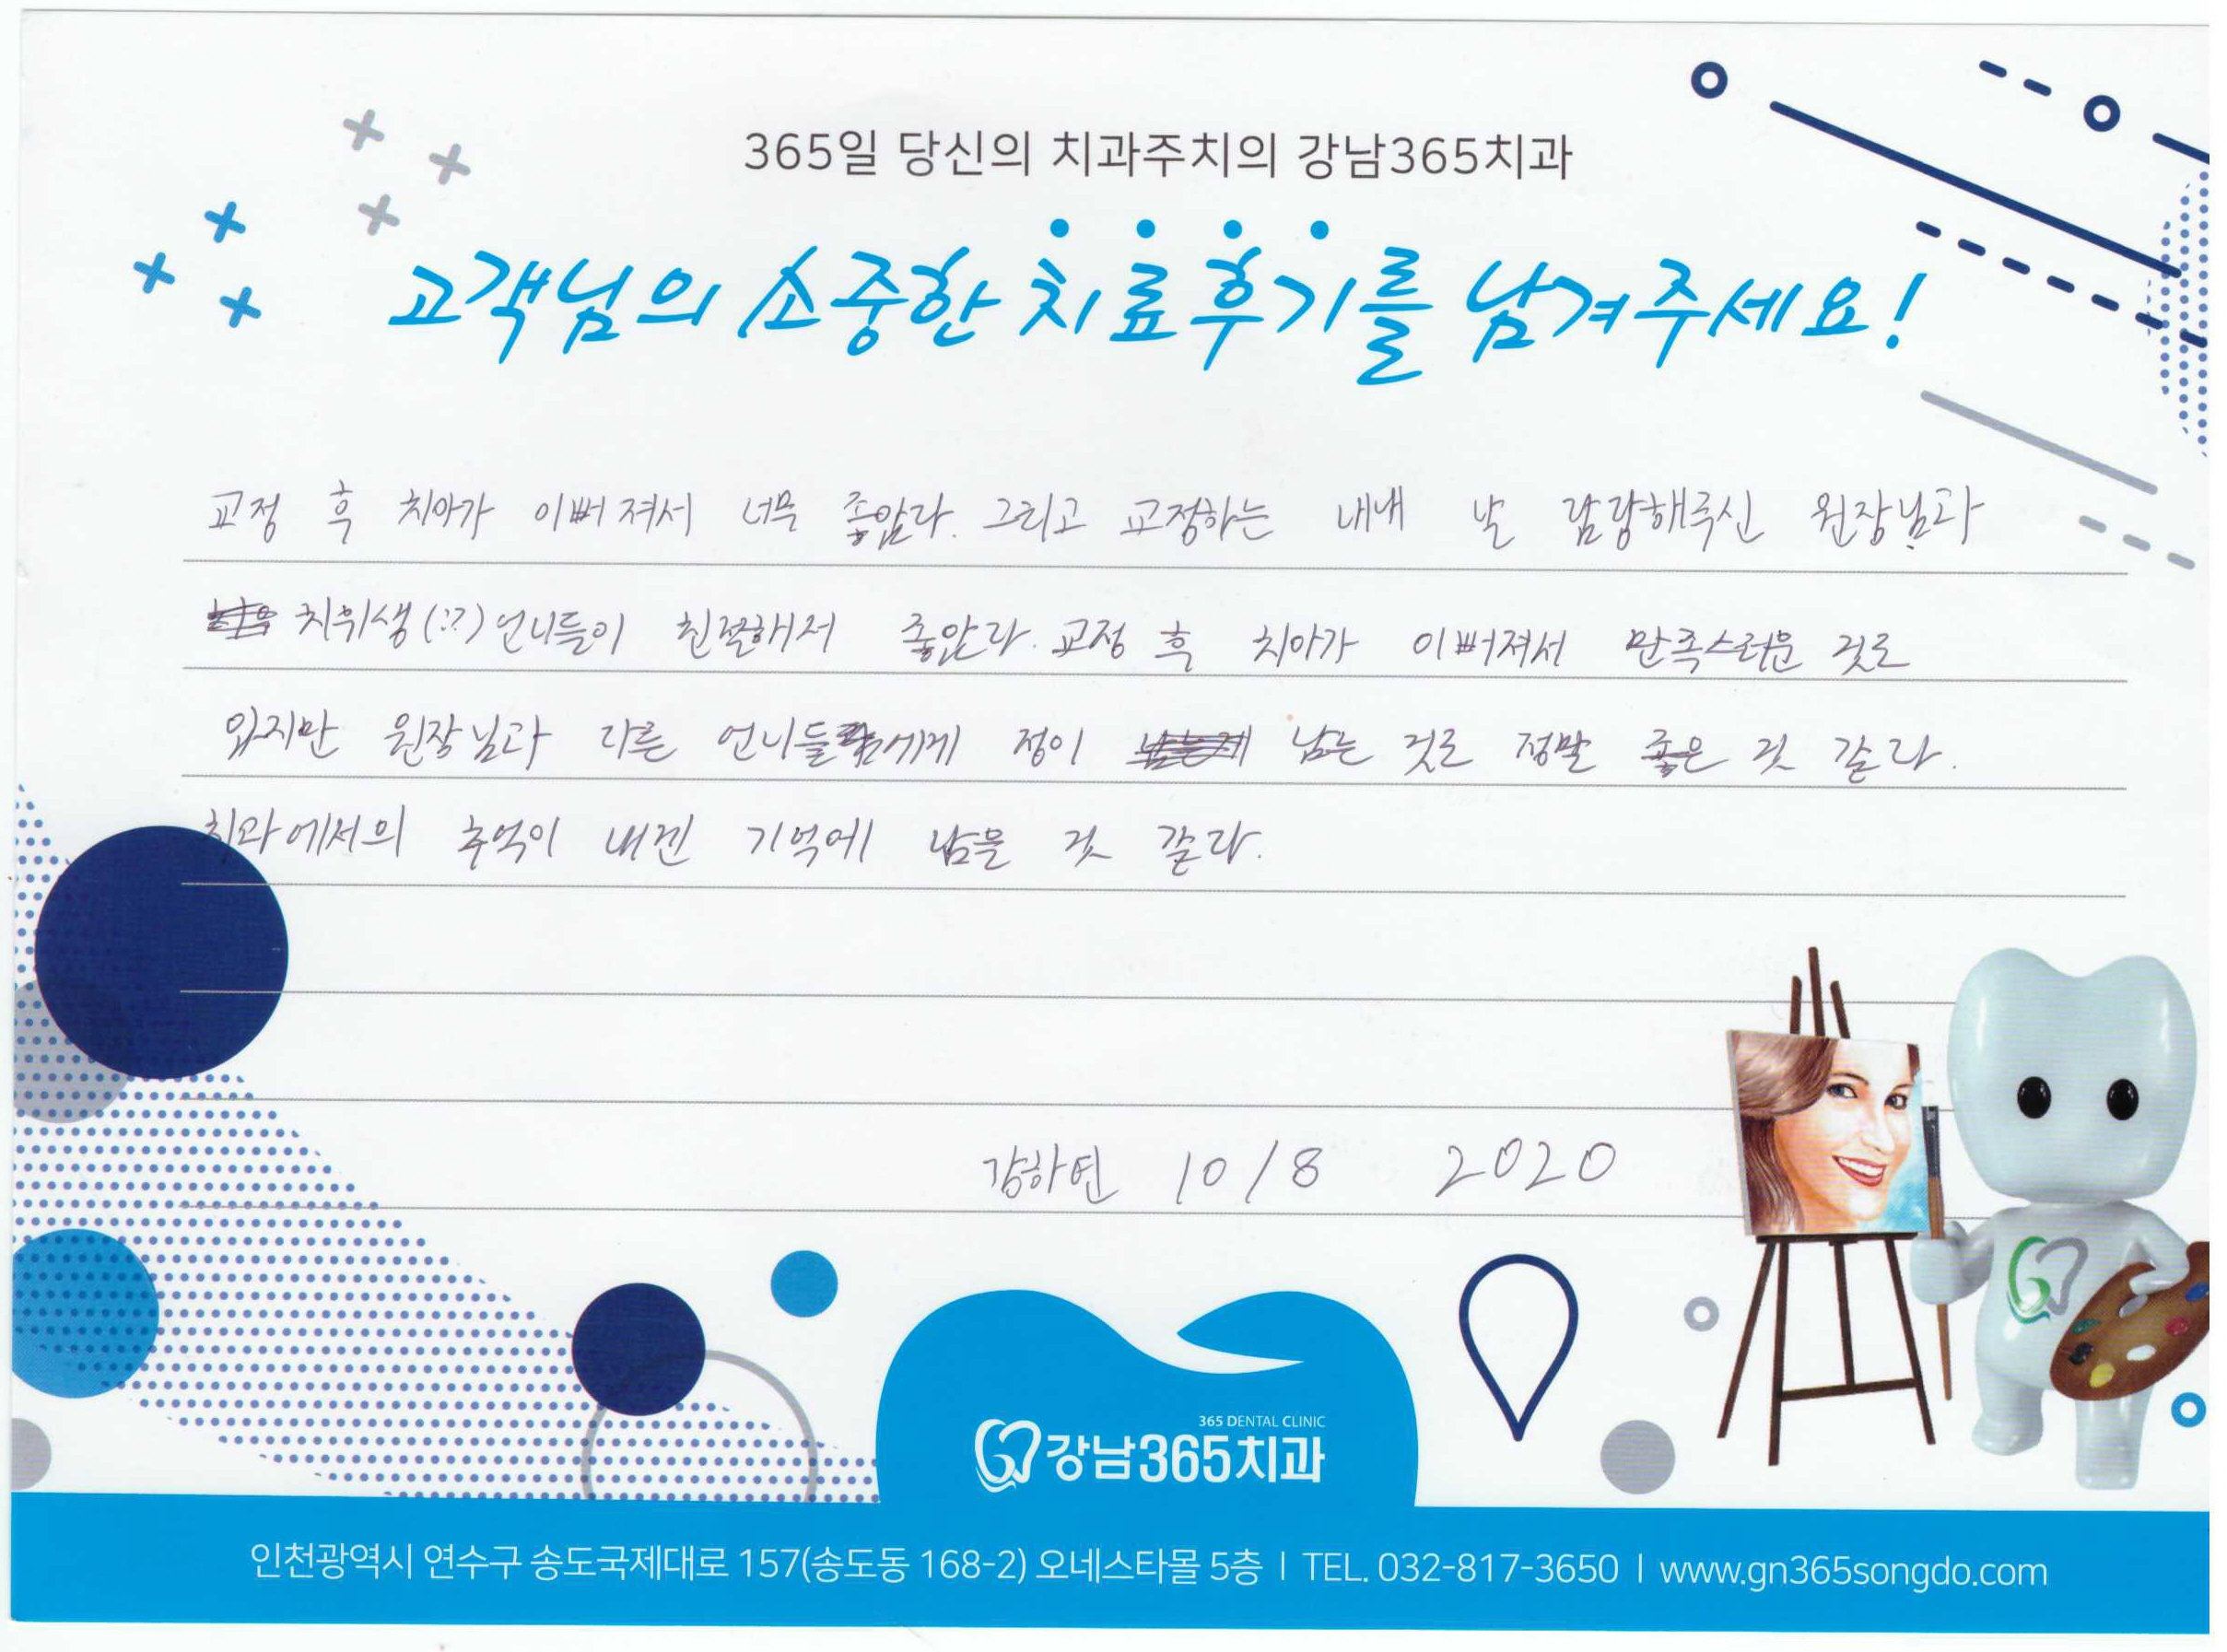 365일 당신의 치과주치의 강남365치과
고객님의 소중한 치료후기를 남겨주세요!
교정 후 치아가 이뻐져서 너무 좋았다. 그리고 교정하는 내내 날 담당해주신 원장님과
치위생(??)언니들이 친절해서 좋았다. 교정 후 치아가 이뻐져서 만족스러운 것도
있지만 원장님과 다른 언니들에게 정이 남는 것도 정말 좋은 것 같다.
치과에서의 추억이 내겐 기억에 남을 것 같다.
강하연 10/8 2020
365 DENTAL CLINIC
강남365치과
인천광역시 연수구 송도국제대로 157(송도동 168-2) 오네스타몰 5층 | TEL. 032-817-3650 | www.gn365songdo.com